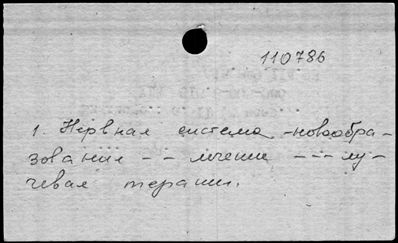 110786
1. Нервная система -новообра-
зования -- лечение --- лу-
чевая терапи.